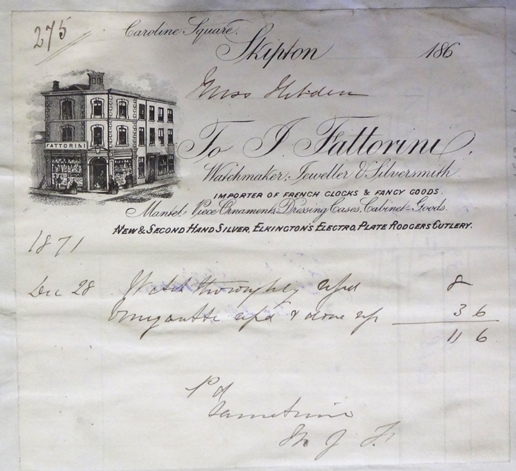 275
Caroline Square.
Skipton 186
Miss Hebden
FATTORINI
To J. Fattorini,
Watchmaker, Jeweller & Silversmith
IMPORTER OF FRENCH CLOCKS & FANCY GOODS.
Mantel-Piece Ornaments, Dressing Cases, Cabinet Goods.
NEW & SECOND HAND SILVER, ELKINGTON'S ELECTRO, PLATE RODGERS CUTLERY.
1871
Dec 28 Watch thoroughly repd 8
repd & done up 3 6
11 6
Pd
Same time
J. F.